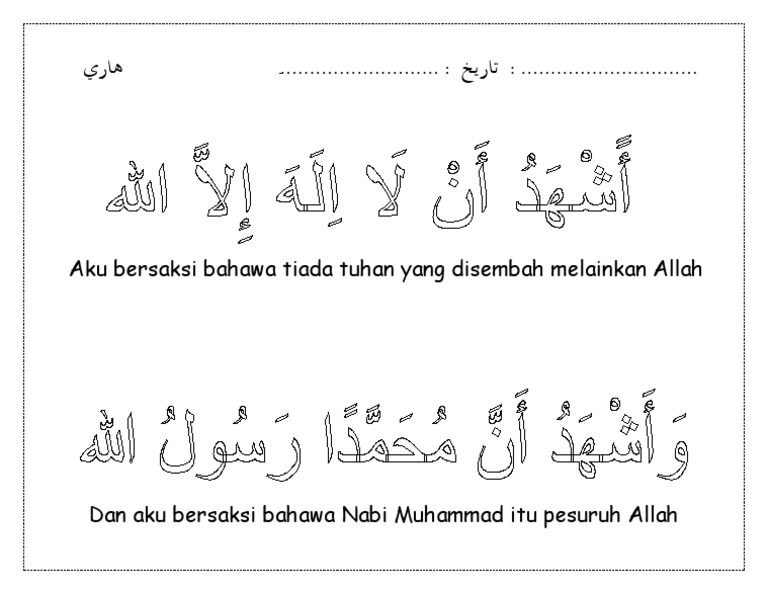 هاري : .......................... تاريخ : ..............................
أًشْهَدُ أَنْ لَا اِلَهَ إِلاَّ الله
Aku bersaksi bahawa tiada tuhan yang disembah melainkan Allah
وَأَشْهَدُ أَنَّ مُحَمَّدًا رَسُولُ الله
Dan aku bersaksi bahawa Nabi Muhammad itu pesuruh Allah